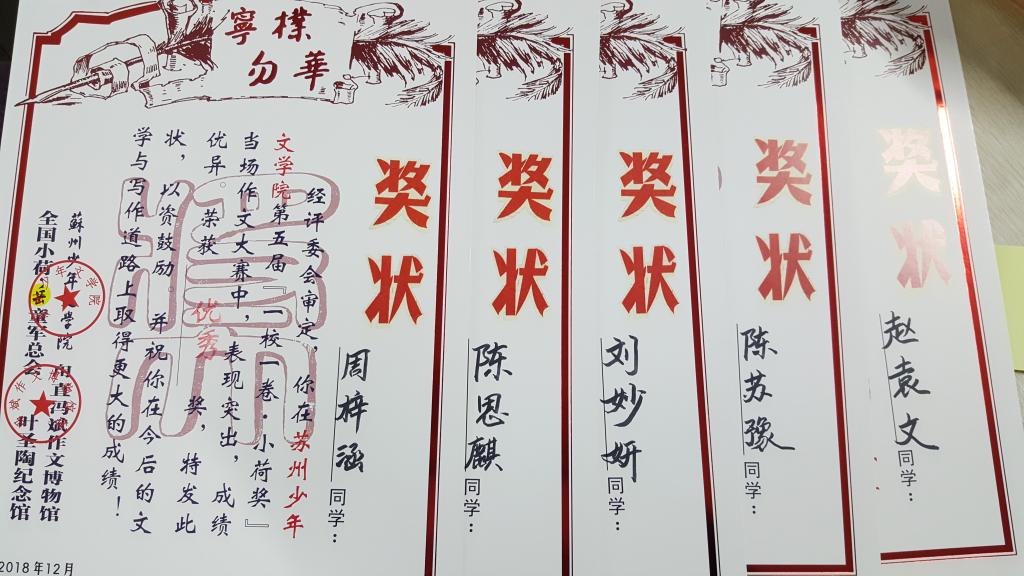 寧樸
勿華
奖状
周梓涵同学：
经评委会审定，你在苏州少年
文学院第五届『一校一卷·小荷奖』
当场作文大赛中，表现突出，成绩
优异。荣获 优秀 奖，特发此
状，以资鼓励。并祝你在今后的文
学与写作道路上取得更大的成绩！
蘇州少年 学院 甪直冯斌作文博物馆
全国小荷 岳童军总会 叶圣陶纪念馆
2018年12月
奖状
陈恩麒同学：
奖状
刘妙妍同学：
奖状
陈苏豫同学：
奖状
赵袁文同学：